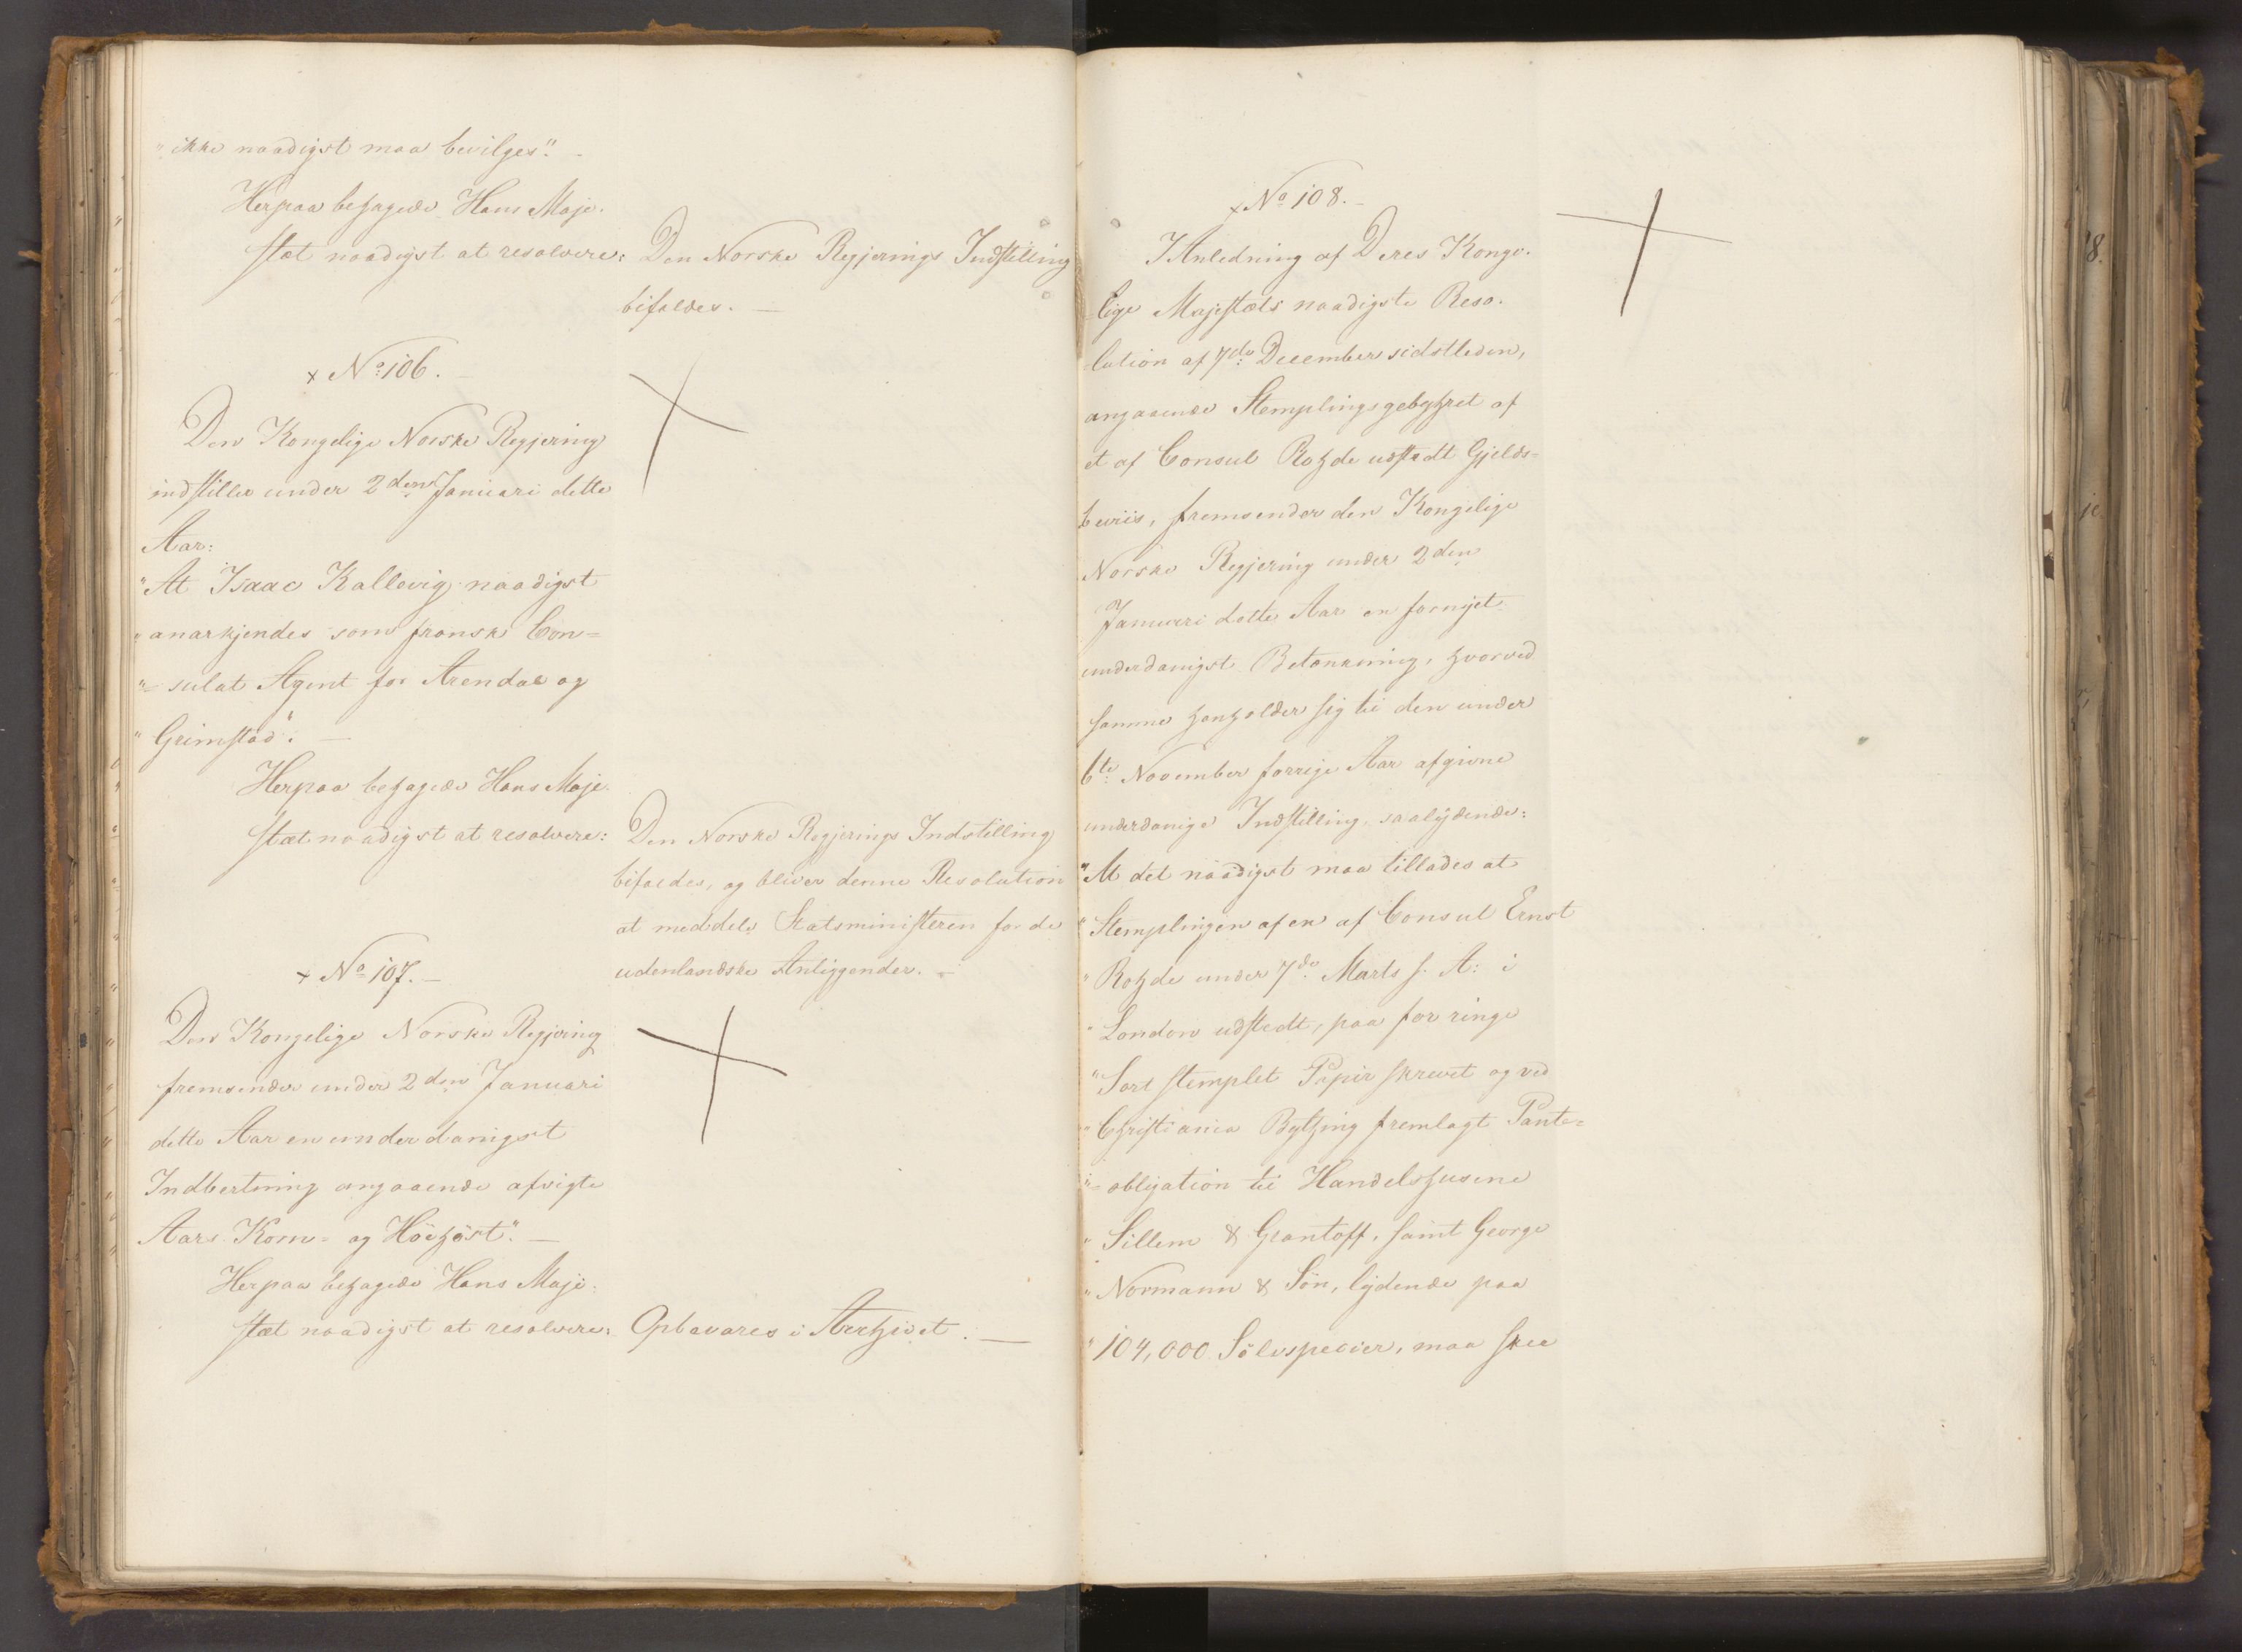 "ikke naadigst maa bevilges".
Herpaa behagede Hans Maje-
stæt naadigst at resolvere:
Den Norske Regjerings Indstilling
bifaldes. —
x No 106. —
Den Kongelige Norske Regjering
indstiller under 2den Januari dette
Aar:
"At Isaac Kallevig naadigst
"anerkjendes som fransk Con=
"=sulat Agent for Arendal og
"Grimstad". —
Herpaa behagede Hans Maje-
stæt naadigst at resolvere:
Den Norske Regjerings Indstilling
bifaldes, og bliver denne Resolution
at meddele Statsministeren for de
udenlandske Anliggender. —
x No 107. —
Den Kongelige Norske Regjering
fremsender under 2den Januari
dette Aar en underdanigst
Indberetning angaaende afvigte
Aars Korn- og Höehöst". —
Herpaa behagede Hans Maje-
stæt naadigst at resolvere:
Opbevares i Archivet. —
x No 108. —
I Anledning af Deres Konge-
lige Majestæts naadigste Reso-
lution af 7de December sidstleden,
angaaende Stemplingsgebyhret af
et af Consul Rohde udstedt Gjelds=
beviis, fremsender den Kongelige
Norske Regjering under 2den
Januari dette Aar en fornyet
underdanigst Betænkning, hvorved
samme henholder sig til den under
6te November forrige Aar afgivne
underdanige Indstilling, saalydende:
"At det naadigst maa tillades at
"Stemplingen af en af Consul Ernst
"Rohde under 7de Marts f. A: i
"London udstedt, paa for ringe
"Sort stemplet Papir skrevet og ved
"Christiania Bything fremlagt Pante=
"=obligation til Handelshusene
"Sillem & Grantoff, samt George
"Normann & Sön, lydende paa
"104,000 Sölvspecier, maa skee